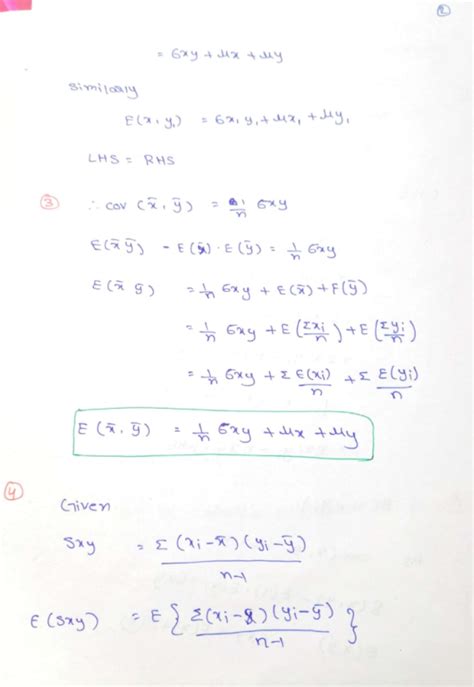 2
= σxy + μx + μy
Similarly
E(x, y,) = σx, y, + μx, + μy,
LHS = RHS
3 ∴ cov (x̄, ȳ) = 1/n σxy
E(x̄ȳ) - E(x̄) · E(ȳ) = 1/n σxy
E(x̄ ȳ) = 1/n σxy + E(x̄) + E(ȳ)
= 1/n σxy + E(Σxi/n) + E(Σyi/n)
= 1/n σxy + Σ E(xi)/n + Σ E(yi)/n
E(x̄, ȳ) = 1/n σxy + μx + μy
4
Given
Sxy = Σ(xi-x̄)(yi-ȳ)/n-1
E(Sxy) = E{Σ(xi-x̄)(yi-ȳ)/n-1}